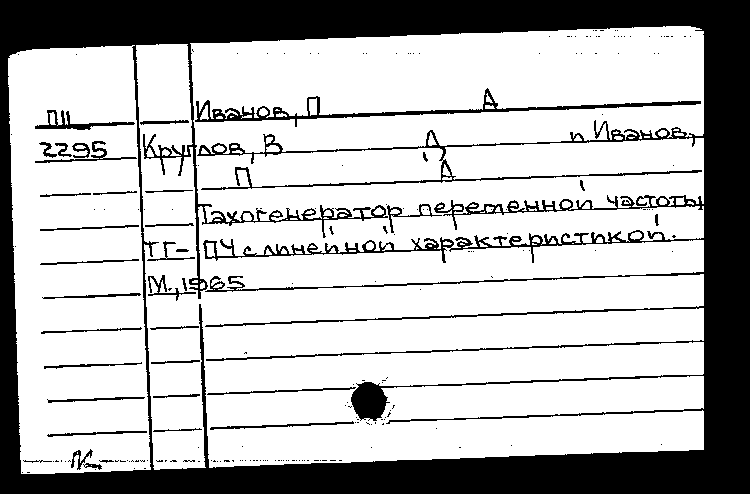 ПII Иванов, П А
2295 Круглов, В Д п Иванов,
П А
Тахогенератор переменной частоты
ТГ-ПЧ с линейной характеристикой.
М., 1965